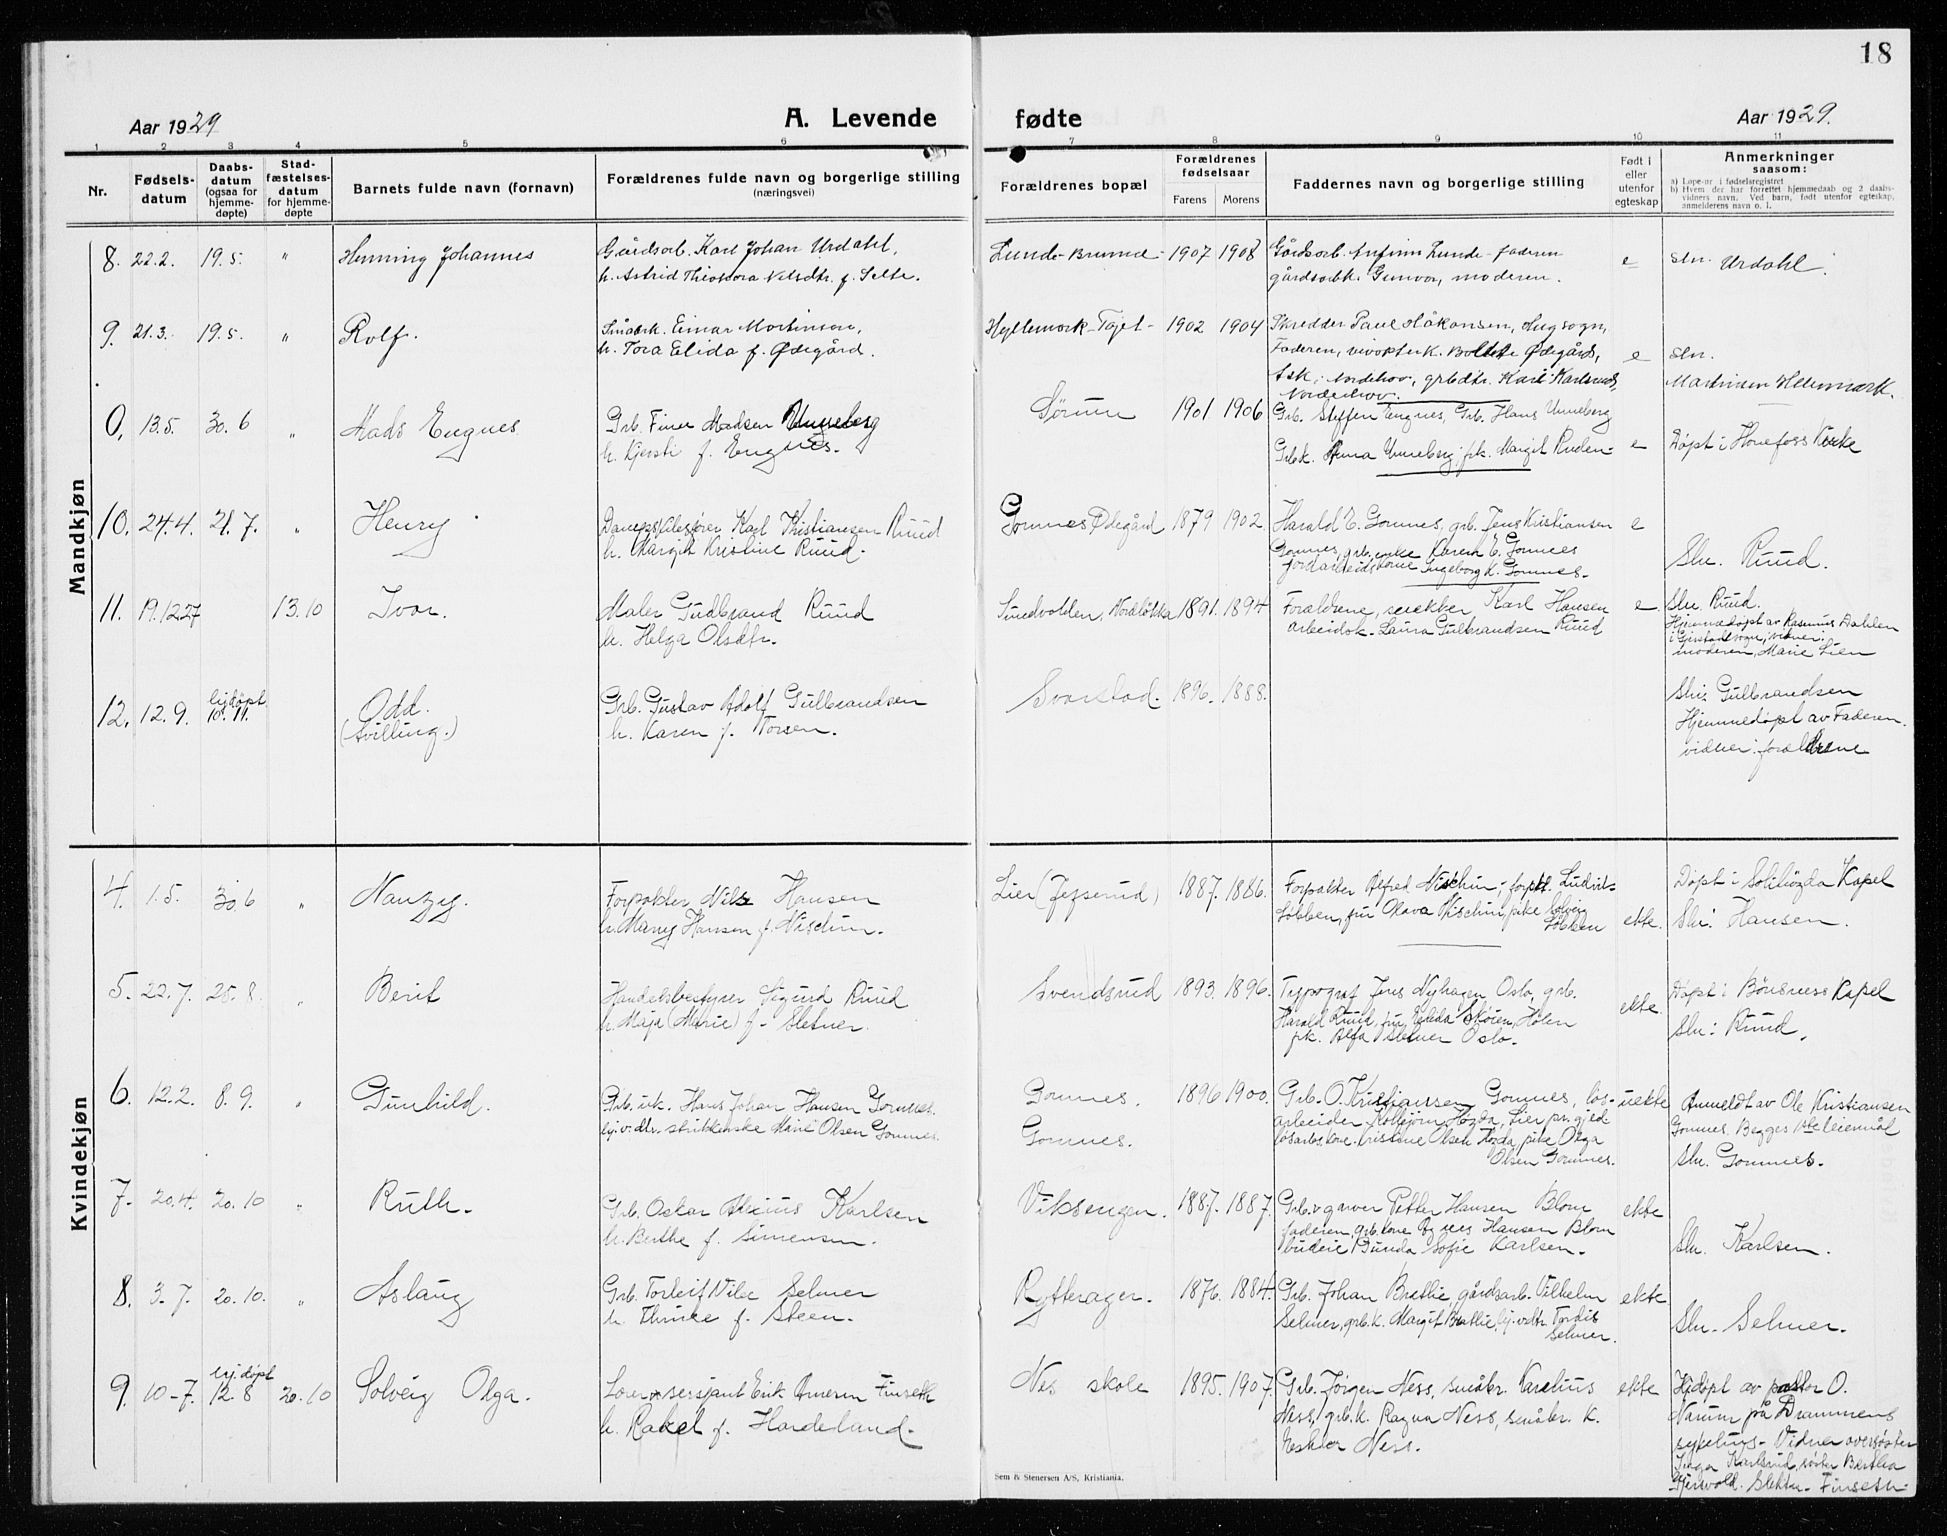 18
Aar 1929
A. Levende
fødte
Aar 1929.
1 2 3 4 5 6 7 8 9 10 11
Nr.
Fødsels-
datum
Daabs-
datum
(ogsaa for
hjemme-
døpte)
Stad-
fæstelses-
datum
for hjemme-
døpte
Barnets fulde navn (fornavn)
Forældrenes fulde navn og borgerlige stilling
(næringsvei)
Forældrenes bopæl
Forældrenes
fødselsaar
Farens Morens
Faddernes navn og borgerlige stilling
Født i
eller
utenfor
egteskap
Anmerkninger
saasom:
a) Løpe-nr i fødselsregistret
b) Hvem der har forrettet hjemmedaab og 2 daabs-
vidners navn. Ved barn, født utenfor egteskap,
anmelderens navn o. l.
Mandkjøn
8. 22.2. 19.5. " Henning Johannes
Gårdsarb. Karl Johan Urdahl,
h. Astrid Theodora Nilsdtr. f. Selte.
Lunde-Brunnd 1907 1908
Gårdsarb. Anfinn Lunde - faderen
gårdsarbk. Gunvor, moderen.
e
sln. Urdahl.
9. 21.3. 19.5. " Rolf.
Småbrk. Einar Mortinsen,
h. Tora Elida f. Ødegård.
Hyllemork-Tajet 1902 1904
Skredder Paul Håkonsen, Haugsogn,
Faderen, Bolette Ødegård,
Ask, Norderhov, grbdtr. Kari Karlsrud,
Norderhov.
e
sln.
Martinsen Hellemork.
0. 13.5. 30.6 " Mads Engnes
Grb. Finn Madsen Unneberg
h. Kjersti f. Engnes.
Sørum 1901 1906
Grb. Steffen Engnes, Grb. Hans Unneberg
Grbk. Anna Unneberg, pk. Margit Ruden
e
Døpt i Hønefoss Kirke
10. 24.4. 21.7. " Henry
Dampskibsfører Karl Kristiansen Ruud
h. Margit Kristine Ruud.
Gomnes Ødegård 1879 1902
Harald E. Gomnes, grb. Jens Kristiansen
Gomnes, grb. enke Karen E. Gomnes
jordarbeiderkone Ingeborg K. Gomnes.
e
Sln. Ruud.
11. 19.12 27 13.10 Ivar.
Maler Gudbrand Ruud
h. Helga Olsdtr.
Sundvolden, Nordløkka 1891. 1894.
Forældrene, Karl Hansen
arbeidsk. Laura Gulbrandsen Ruud
e.
Sln. Ruud.
Hjemmedøpt av Rasmus Dahlen
vidner:
moderen, Marie Lien
12. 12.9. hjdøpt
10.11. Odd.
(tvilling.)
Grb. Gustav Adolf Gulbrandsen
h. Karen f. Torsen.
Svarstad. 1896. 1888.
Sln. Gulbrandsen
Hjemmedøpt av Faderen.
vidner: forældrene
Kvindekjøn
4. 1.5. 30.6 " Nanzy.
Forpakter Nils Hansen
h. Mary Hansen f. Nischin.
Lier (Jegserud) 1887. 1886.
Forpakter Alfred Nischin; forpkt. Ludvik
Løbben, fru Olava Nischin, pike Solveig
Løbben
ekte.
Døpt i Sollihøgda Kapel
Sln: Hansen.
5. 22.7. 25.8. " Berit
Handelsbestyrer Sigurd Ruud
h. Maja (Marie) f. Sletner.
Svendsrud 1893. 1896.
Typograf Jens Nyhagen Oslo, grb.
Harald Ruud, fru Edda Skøien, Holen
pk. Alfa Sletner Oslo.
ekte.
Døpt i Bønsnes Kapel
Sln: Ruud.
6. 12.2. 8.9. " Gunhild.
Grb. uk. Hans Johan Hansen Gomnes.
hj.v.dtr. strikkerske Marie Olsen Gomnes.
Gomnes.
Gomnes.
1896 1900.
Grb. O. Kristiansen Gomnes, løs-
arbeider Kolbjørn Hozda, Lier pr. gjeld
løsarb. kone Kristine Olsen Hozda, pike Olga
Olsen Gomnes.
uekte
Anmeldt av Ole Kristiansen
Gomnes. Begges 1ste leiermål
Sln. Gomnes.
7. 20.4. 20.10 " Ruth.
Grb. Oskar Karlsen
h. Berthe f. Simensen.
Viksengen. 1887. 1887.
Grb. & garver Petter Hansen Blom
faderen, grb. kone Agnes Hansen Blom
budeie Gunda Sofie Karlsen.
ekte
Sln. Karlsen.
8. 3.7. 20.10. " Aslaug
Grb. Torleif Nils Selmer
h. Thrine f. Steen.
Rytterager. 1876. 1884.
Grb. Johan Brethie, gårdsarb. Vilhelm
Selmer, grb. k. Margit Brethie, hj.v.dtr. Tordis
Selmer.
ekte
Sln. Selmer.
9. 10-7. hj.døpt
12.8 20.10 Solveig Olga.
Lærer & sersjant Erik Arnesen Finseth
h. Rakel f. Hordelund.
Nes skole 1895. 1907.
Grb. Jørgen Ness, småbr. Karelius
Ness, grb. k. Ragna Ness, småbr. k.
Ester Ness.
ekte
Hjdøpt av pastor O.
Narum på Drammens
sykehus. Vidner oversøster
Inga Karlsrud, søster Berthea
Gjersvold. Slektn. Finseth.
Sem & Stenersen A/S, Kristiania.